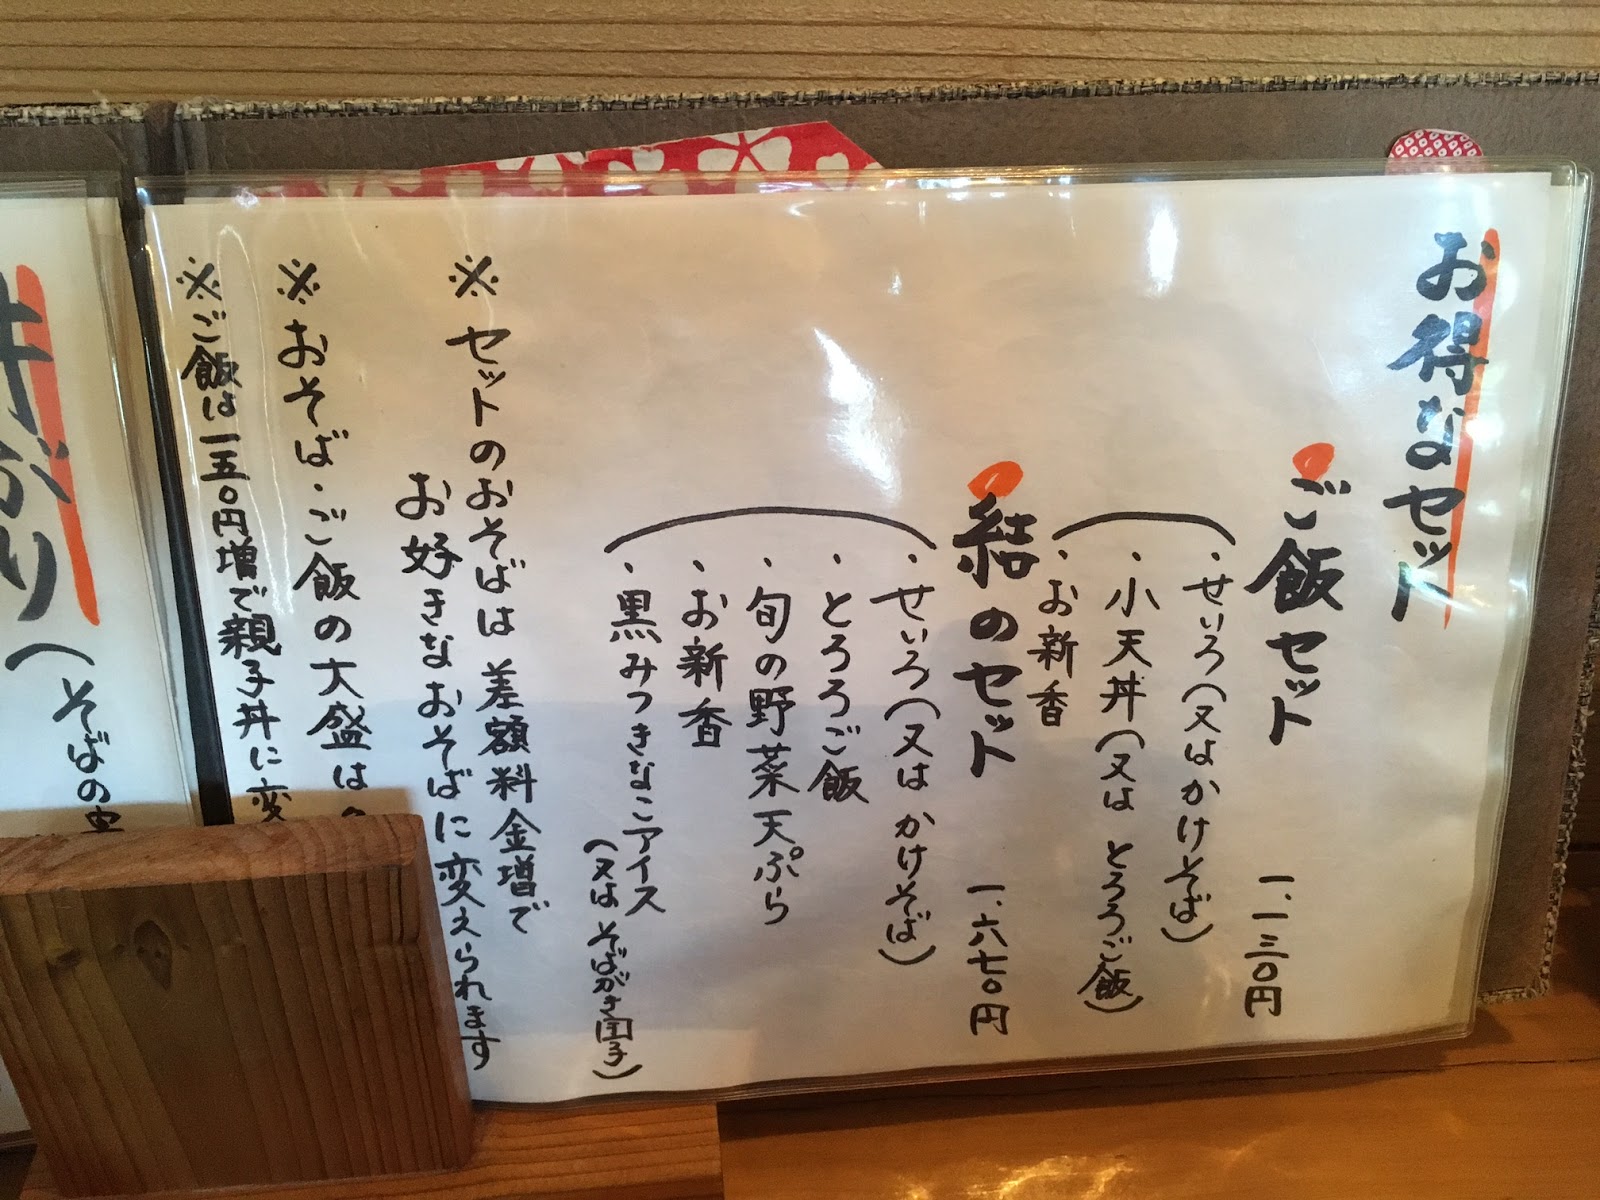 お得なセット
ご飯セット 一、一三〇円
・せいろ(又はかけそば)
・小天丼(又はとろろご飯)
・お新香
結のセット 一、六七〇円
・せいろ(又はかけそば)
・とろろご飯
・旬の野菜天ぷら
・お新香
・黒みつきなこアイス
(又はそばがき団子)
※セットのおそばは差額料金増で
お好きなおそばに変えられます
※おそば・ご飯の大盛は
※ご飯は一五〇円増で親子丼に変
丼ぶり(そばの